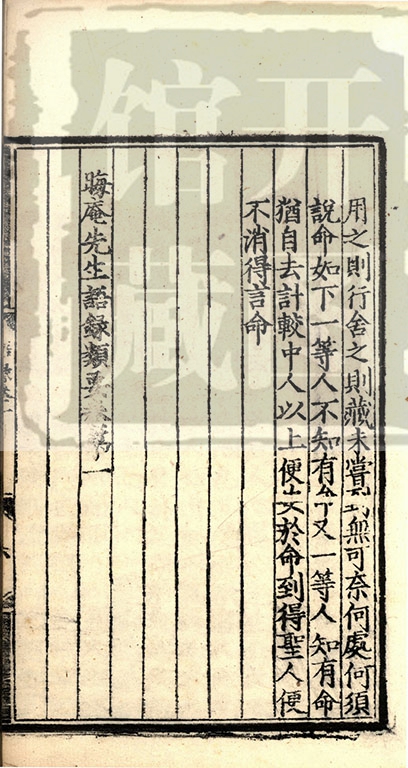 用之則行舍之則藏未嘗到無可奈何處何須
說命如下一等人不知有命又一等人知有命
猶自去計較中人以上便安於命到得聖人便
不消得言命
晦庵先生語錄類要卷第一
開
館藏